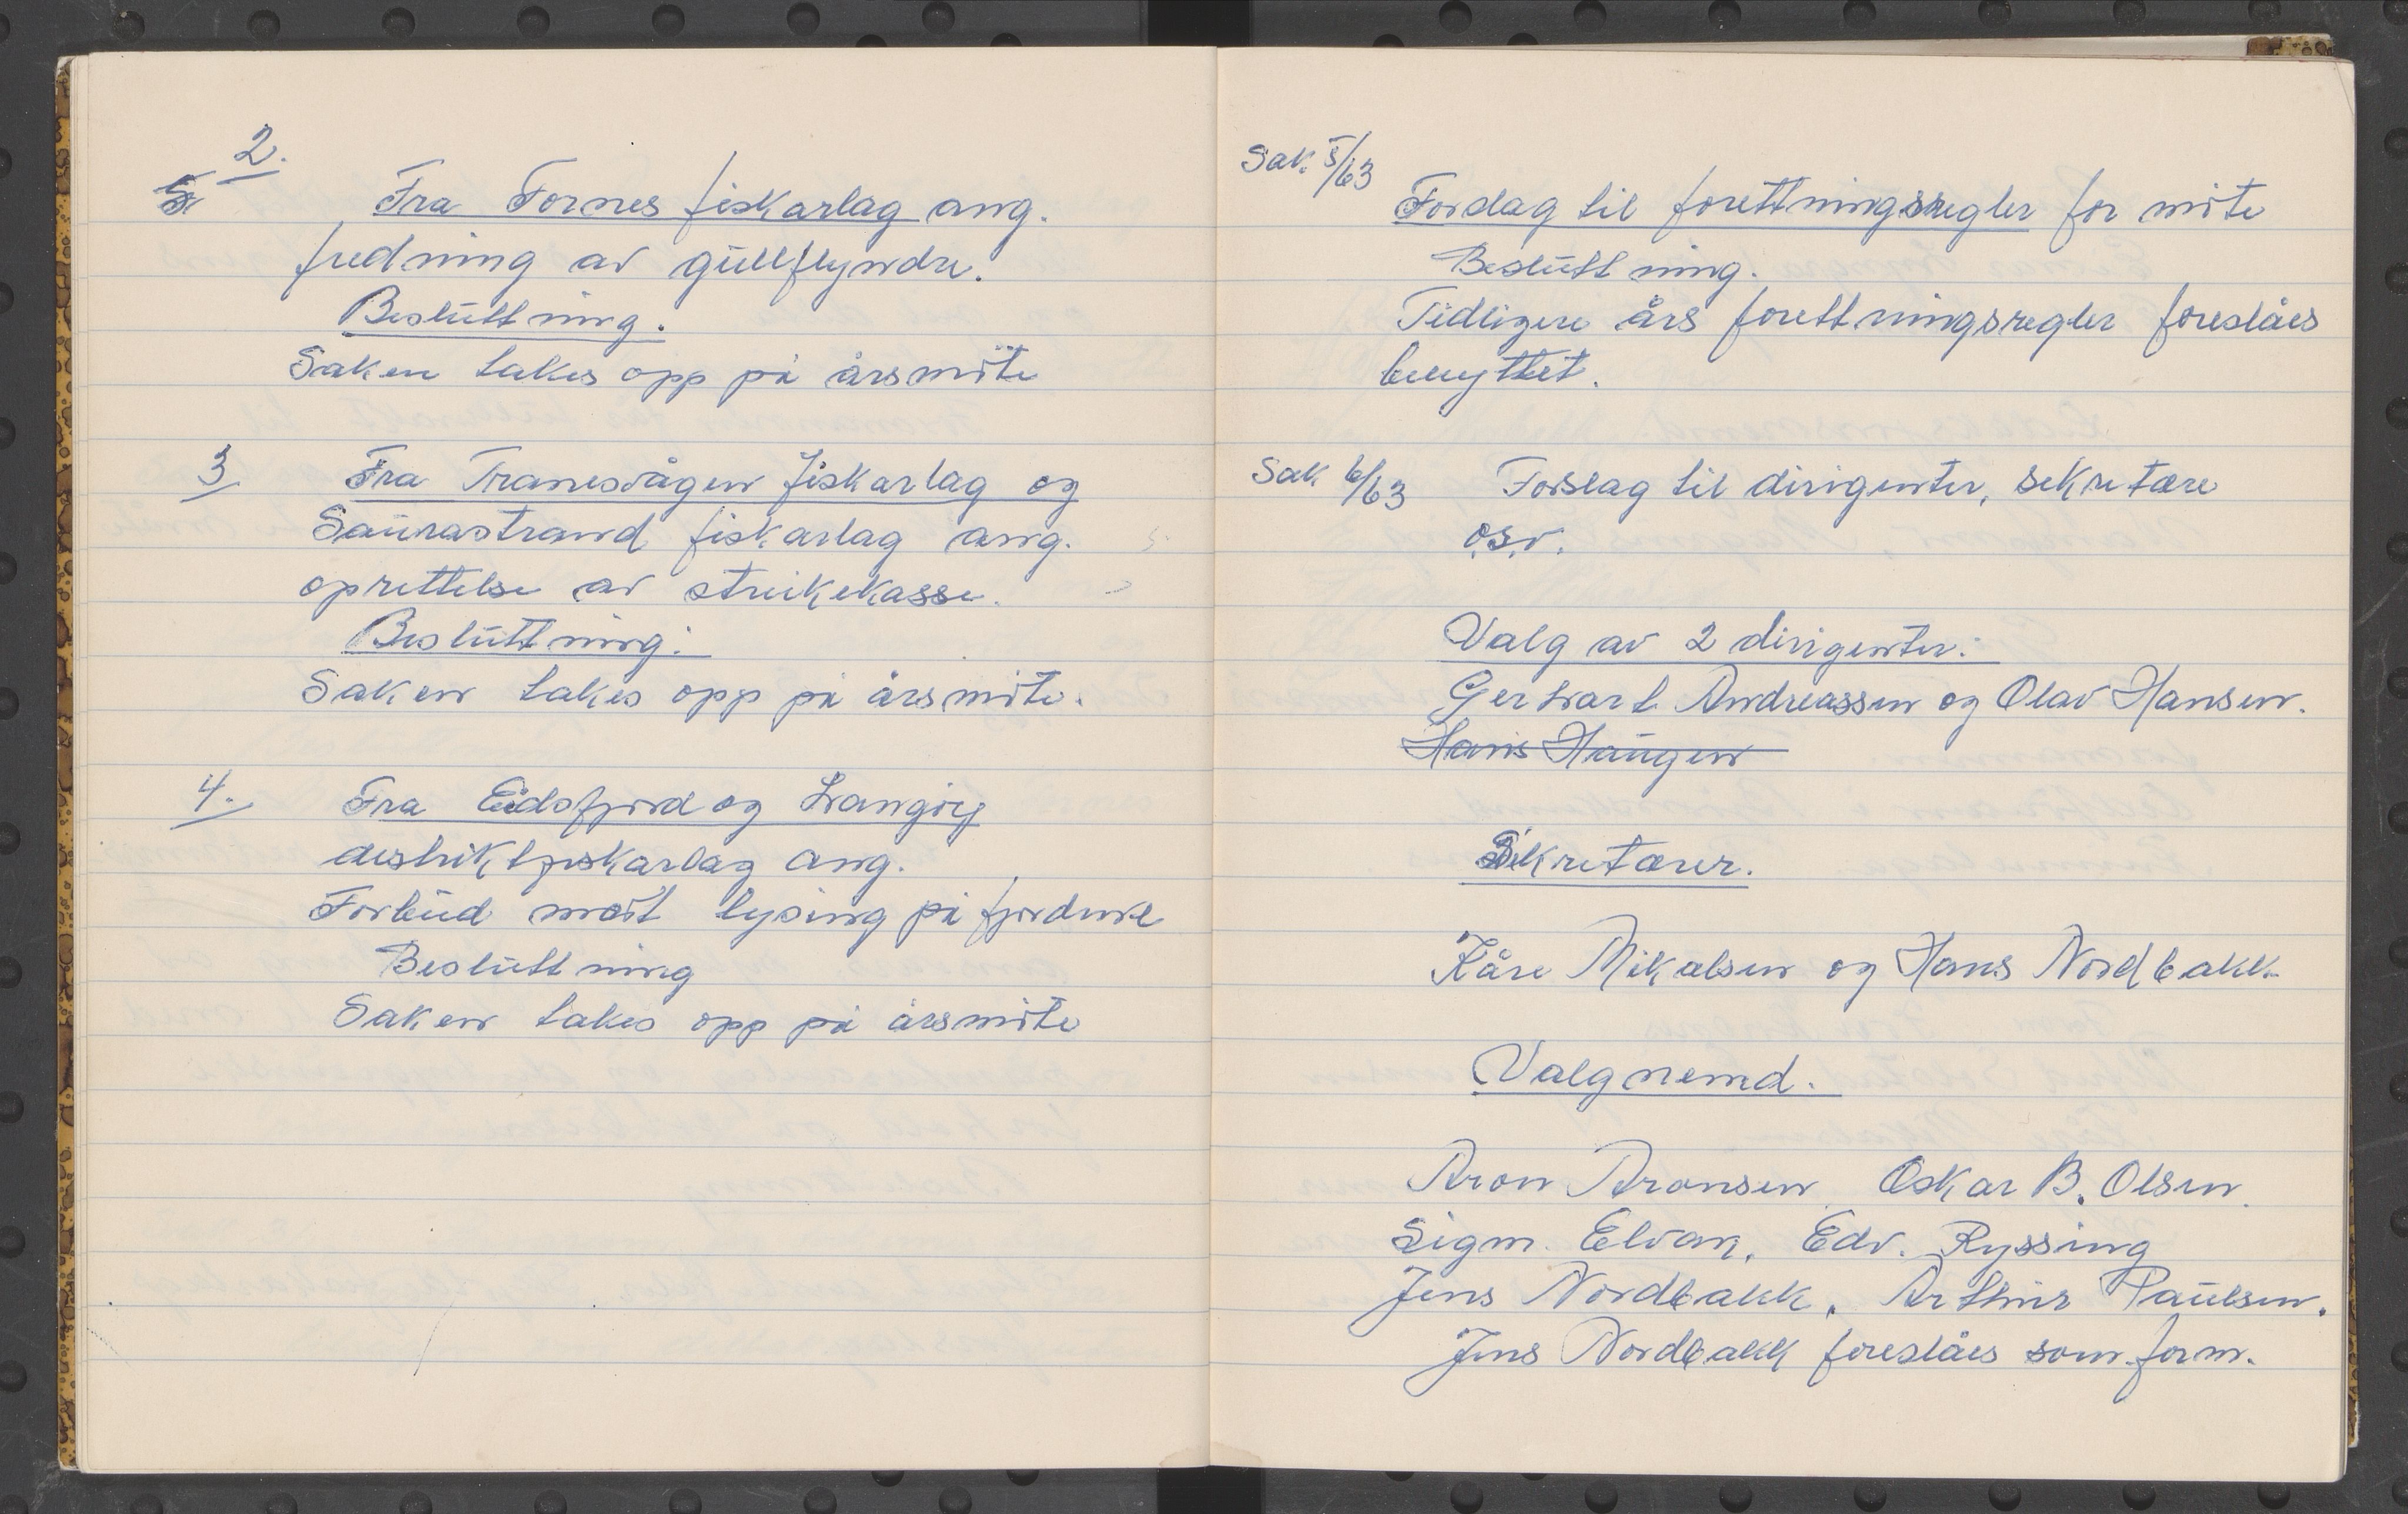 2.
Fra Fornes fiskarlag ang.
fredning av gullflyndre.
Besluttning.
Saken takes opp på årsmöte
3
Fra Tranesvågen fiskarlag og
Saurastrand fiskarlag ang.
oprettelse av streikekasse.
Besluttning:
Saken takes opp på årsmöte.
4.
Fra Eidsfjord og Langöy
destriktfiskarlag ang.
Forbud mot lysing på fjordene
Besluttning
Saken takes opp på årsmöte
Sak. 5/63
Forslag til forettningsregler for möte
Besluttning.
Tidligere års forettningsregler foreslåes
benyttet.
Sak 6/63 Forslag til dirigenter, sekretære
o.s.v.
Valg av 2 dirigenter:
Gerhart Andreassen og Olav Hansen.
Hans Haugen
Sekretærer.
Kåre Mikalsen og Hans Nordbakk
Valgnemd.
Aron Aronsen, Oskar B. Olsen.
Sigm. Elvan, Edv. Ryssing
Jens Nordbakk, Arthur Paulsen.
Jens Nordbakk foreslåes som form.